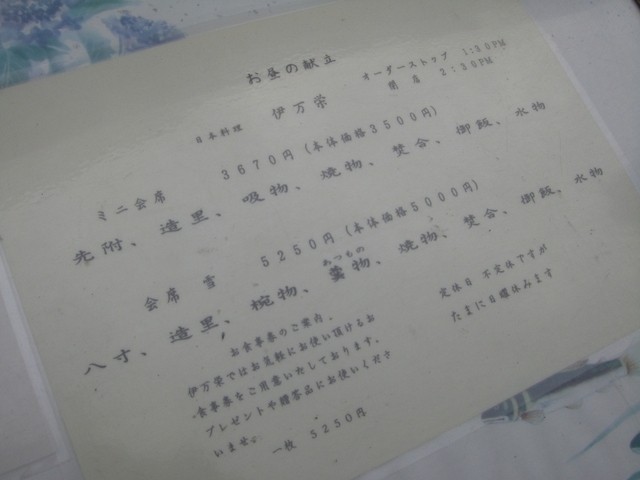 お昼の献立
オーダーストップ 1:30PM
閉店 2:30PM
日本料理 伊万栄
ミニ会席 3670円(本体価格3500円)
先附、造里、吸物、焼物、焚合、御飯、水物
会席 雪 5250円(本体価格5000円)
あつもの
八寸、造里、椀物、羹物、焼物、焚合、御飯、水物
お食事券のご案内。
伊万栄ではお気軽にお使い頂けるお
食事券をご用意いたしております。
プレゼントや贈答品にお使いくださ
いませ。
一枚 5250円
定休日 不定休ですが
たまに日曜休みます